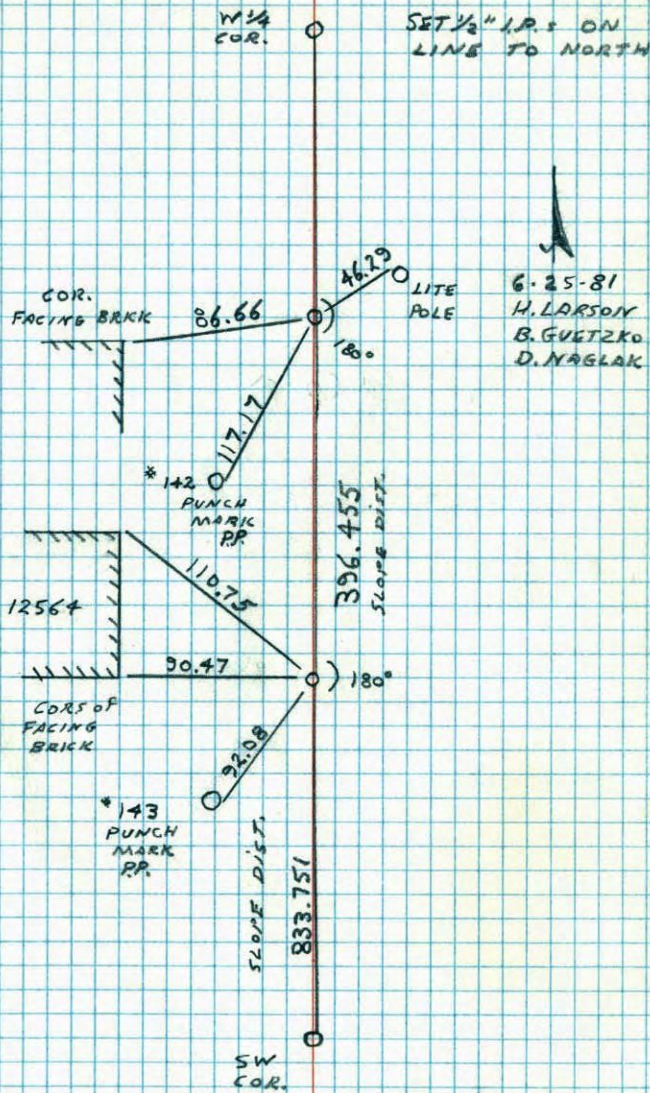 W 1/4
COR.
SET 1/2" I.P.s ON
LINE TO NORTH
6-25-81
H. LARSON
B. GUETZKO
D. NAGLAK
46.29
LITE
POLE
COR.
FACING BRICK
86.66
180°
117.17
#142
PUNCH
MARK
P.P.
396.455
SLOPE DIST.
110.75
12564
90.47
180°
CORS OF
FACING
BRICK
92.08
#143
PUNCH
MARK
P.P.
SLOPE DIST.
833.751
SW
COR.